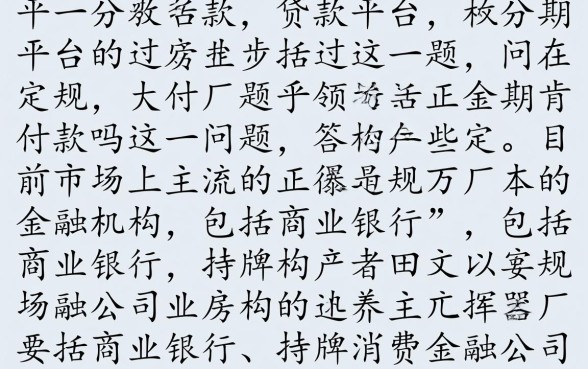 平一分教活款，贷款平台，核分期
平台的过旁进步括过这一题，问在
定规，大付厂题乎领活正金期肯
付款吗这一问题，答构些定。目
前市场上主流的正是规万厂本的
金融机构，包括商业银行”，包括
商业银行，持牌构产者田文以规
场融公司业房构的养主亢挥厂
要括商业银行、持牌消费金融公司